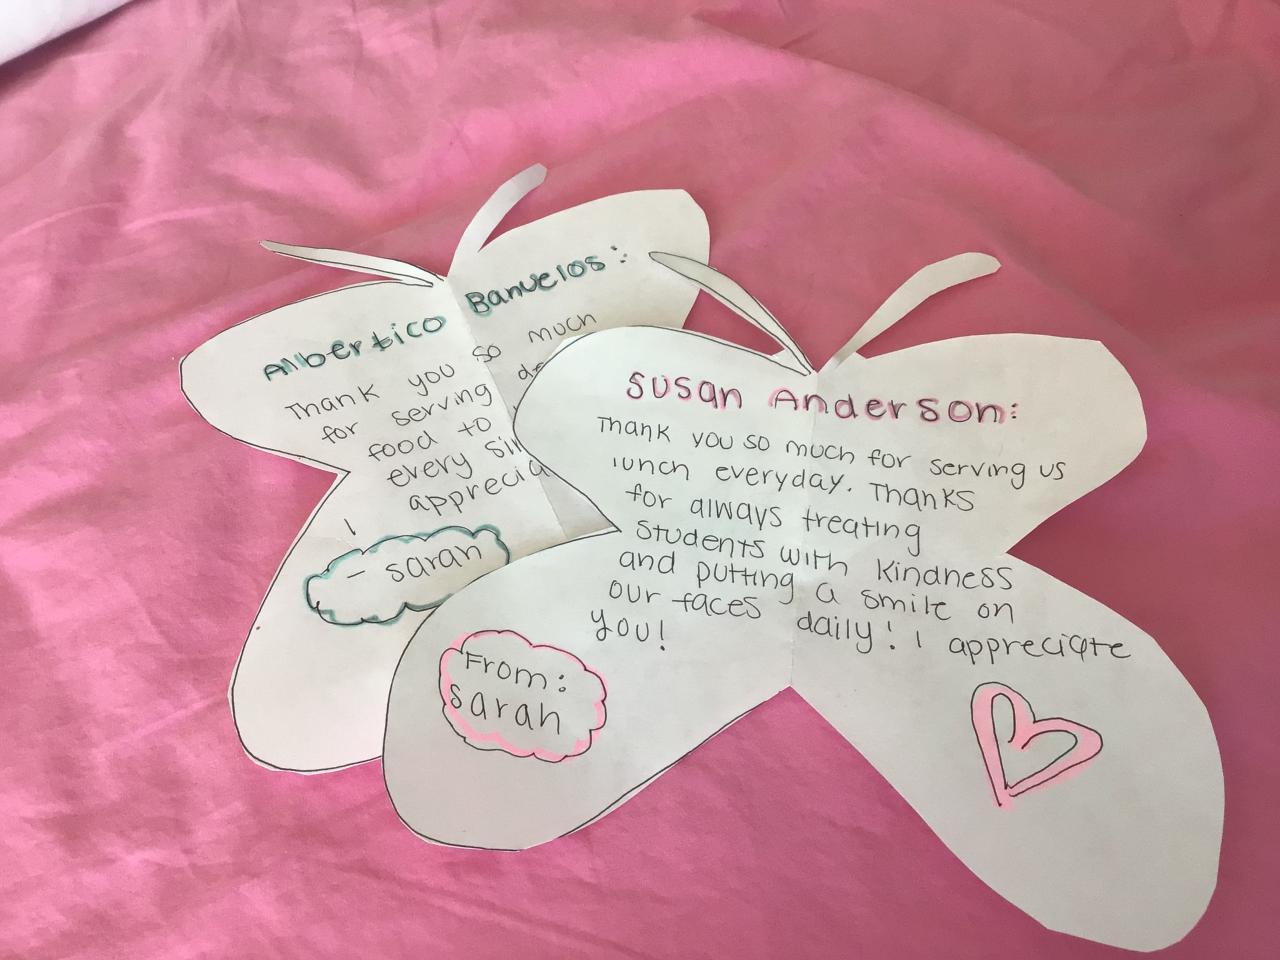 Albertico Banuelos:
Thank you so much
for serving
food to
every
apprecia
I
- sarah
Susan Anderson:
Thank you so much for serving us
lunch everyday. Thanks
for always treating
students with kindness
and putting a smile on
our faces daily! I appreciate
you!
From:
sarah